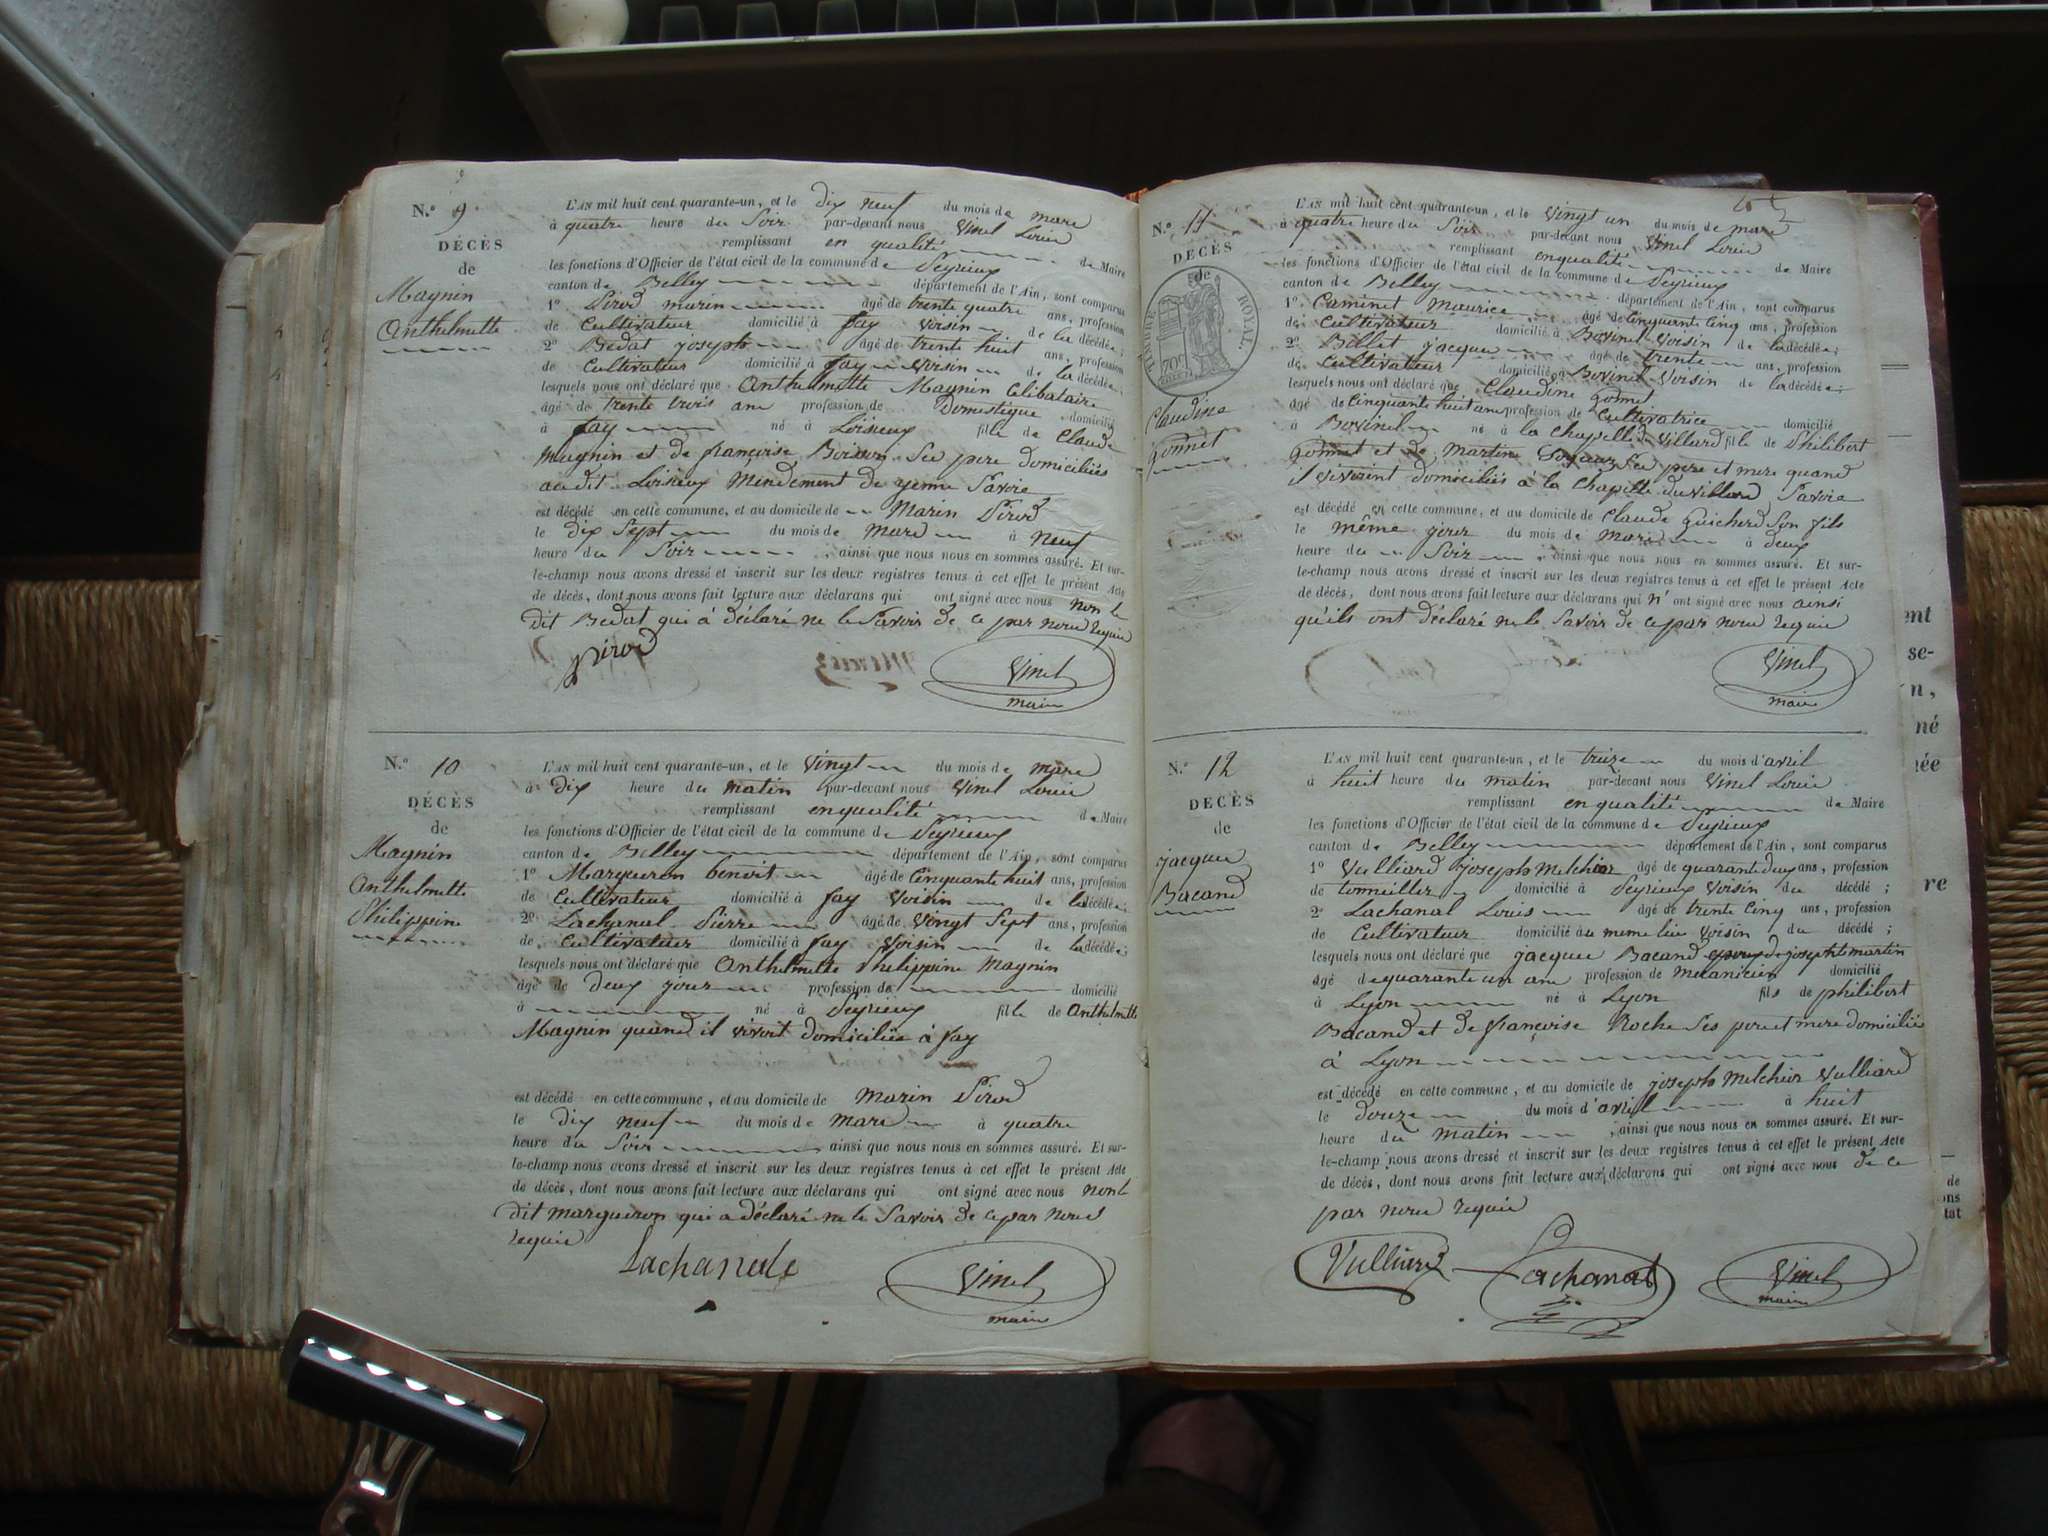 N.° 9
DÉCÈS
de
Magnin
Anthelmette
L'AN mil huit cent quarante-un, et le dix neuf du mois de mars
à quatre heure du Soir par-devant nous Vinel Louis
remplissant en qualité de Maire
les fonctions d'Officier de l'état civil de la commune de Peyrieux
canton de Belley département de l'Ain, sont comparus
1° Pirod marin âgé de trente quatre ans, profession
de Cultivateur domicilié à fay voisin de la décédée;
2° Bedat joseph âgé de trente huit ans, profession
de Cultivateur domicilié à fay voisin de la décédée;
lesquels nous ont déclaré que Anthelmette Magnin Celibataire
âgé de trente trois ans profession de Domestique domicilié
à fay né à Loisieux fille de Claude
Magnin et de françoise Boisson Ses pere domiciliés
audit Loisieux Mendement de yenne Savoie
est décédé en cette commune, et au domicile de Marin Pirod
le dix Sept du mois de Mars à neuf
heure du Soir, ainsi que nous nous en sommes assuré. Et sur-
le-champ nous avons dressé et inscrit sur les deux registres tenus à cet effet le présent Acte
de décès, dont nous avons fait lecture aux déclarans qui ont signé avec nous non le
dit Bedat qui à déclaré ne le Savoir de ce par nous requis
pirod
Vinel
maire
N.° 10
DÉCÈS
de
Magnin
Anthelmette
Philippine
L'AN mil huit cent quarante-un, et le Vingt du mois de mars
à dix heure du matin par-devant nous Vinel Louis
remplissant en qualité de Maire
les fonctions d'Officier de l'état civil de la commune de Peyrieux
canton de Belley département de l'Ain, sont comparus
1° Margueron benoit âgé de Cinquante huit ans, profession
de Cultivateur domicilié à fay voisin de la décédée;
2° Lachanal Pierre âgé de vingt Sept ans, profession
de Cultivateur domicilié à fay voisin de la décédée;
lesquels nous ont déclaré que Anthelmette Philippine Magnin
âgé de deux jours profession de domicilié
à né à Peyrieux fille de Anthelmette
Magnin quand il vivoit domiciliée à fay
est décédé en cette commune, et au domicile de Marin Pirod
le dix neuf du mois de Mars à quatre
heure du Soir ainsi que nous nous en sommes assuré. Et sur-
le-champ nous avons dressé et inscrit sur les deux registres tenus à cet effet le présent Acte
de décès, dont nous avons fait lecture aux déclarans qui ont signé avec nous non le
dit margueron qui a déclaré ne le Savoir de ce par nous
requis
Lachanale
Vinel
maire
N.° 11
DÉCÈS
de
TIMBRE ROYAL.
Claudine
gonnet
L'AN mil huit cent quarante-un, et le Vingt un du mois de mars
à quatre heure du Soir par-devant nous Vinel Louis
remplissant en qualité de Maire
les fonctions d'Officier de l'état civil de la commune de Peyrieux
canton de Belley département de l'Ain, sont comparus
1° Caminet Maurice âgé de Cinquante Cinq ans, profession
de Cultivateur domicilié à Bovinel voisin de la décédée;
2° Bellet jacques âgé de trente ans, profession
de Cultivateur domicilié à Bovinel Voisin de la décédée;
lesquels nous ont déclaré que Claudine gonnet
âgé de Cinquante huit ans profession de Cultivatrice domicilié
à Bovinel né à la Chapelle du Villard fille de Philibert
gonnet et de Martine Ses pere et mere quand
il vivoient domiciliés à la Chapelle du villard Savoie
est décédé en cette commune, et au domicile de Claude Guicherd Son fils
le même jour du mois de Mars à deux
heure du Soir, ainsi que nous nous en sommes assuré. Et sur-
le-champ nous avons dressé et inscrit sur les deux registres tenus à cet effet le présent Acte
de décès, dont nous avons fait lecture aux déclarans qui n'ont signé avec nous ainsi
qu'ils ont déclaré ne le Savoir de ce par nous requis
Vinel
maire
N.° 12
DÉCÈS
de
jacques
Bacand
L'AN mil huit cent quarante-un, et le treize du mois d'avril
à huit heure du matin par-devant nous Vinel Louis
remplissant en qualité de Maire
les fonctions d'Officier de l'état civil de la commune de Peyrieux
canton de Belley département de l'Ain, sont comparus
1° Vulliard joseph Melchior âgé de quarante deux ans, profession
de tonnellier domicilié à Peyrieux voisin du décédé;
2° Lachanal Louis âgé de trente Cinq ans, profession
de Cultivateur domicilié au meme lieu voisin du décédé;
lesquels nous ont déclaré que jacques Bacand epoux de josephte martin
âgé de quarante un ans profession de Mécanicien domicilié
à Lyon né à Lyon fils de philibert
Bacand et de françoise Roche Ses pere et mere domiciliés
à Lyon
est décédé en cette commune, et au domicile de joseph Melchior Vulliard
le douze du mois d'avril à huit
heure du matin, ainsi que nous nous en sommes assuré. Et sur-
le-champ nous avons dressé et inscrit sur les deux registres tenus à cet effet le présent Acte
de décès, dont nous avons fait lecture aux déclarans qui ont signé avec nous de ce
par nous requis
Vulliard
Lachanal
Vinel
maire